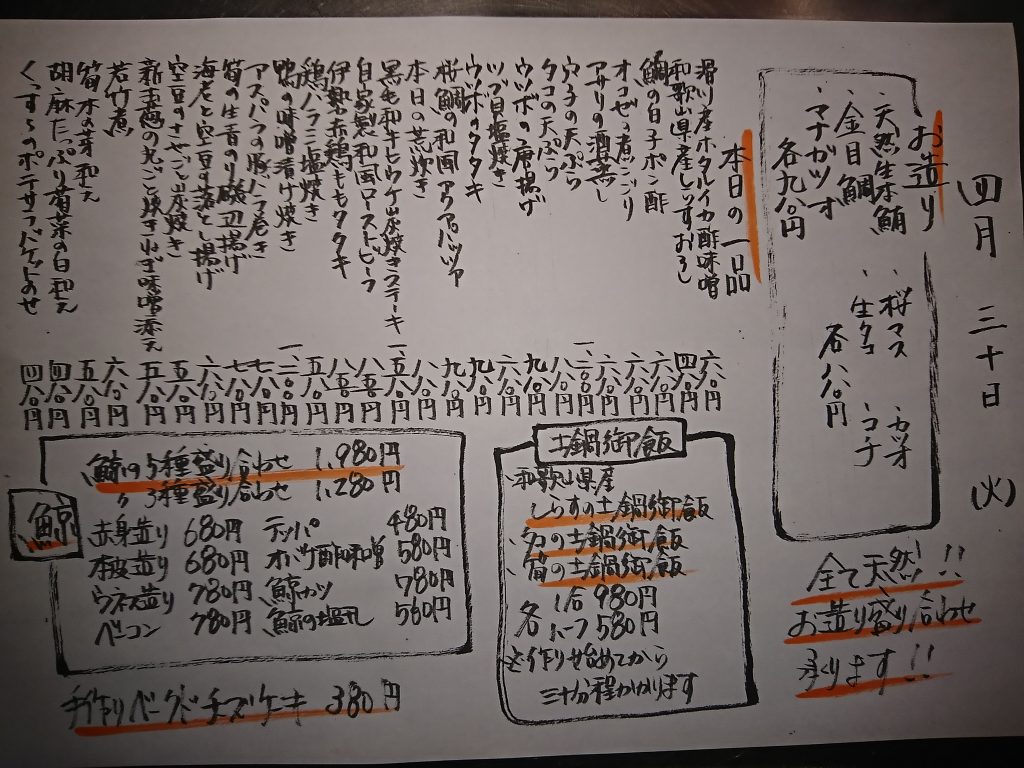 四月三十日(火)
お造り
・天然生本鮪
・金目鯛
・マナガツオ
各九八〇円
・桜マス
・カツオ
・生タコ
・コチ
各八八〇円
全て天然!!
お造り盛り合わせ
承ります!!
本日の一品
滑川産ホタルイカ酢味噌 六八〇円
和歌山県産しらすおろし 四八〇円
鯛の白子ポン酢
オコゼの煮こごり
アサリの酒蒸し
穴子の天ぷら
タコの天ぷら
ウツボの唐揚げ
ツブ貝塩焼き
ウツボのタタキ
桜鯛の和風アクアパッツァ
本日の荒炊き
黒毛和牛トウガラシ炭焼きステーキ
自家製和風ローストビーフ
伊勢赤鶏ももタタキ
鶏ハラミ塩焼き
鴨の味噌漬け焼き
アスパラの豚バラ巻き
筍の生青のり磯辺揚げ
海老と空豆の落とし揚げ
空豆のさやごと炭焼き
新玉葱の丸ごと焼き ねぎ味噌添え
若竹煮
筍木の芽和え 五八〇円
胡麻たっぷり菊菜の白和え 四八〇円
くっすらのポテサラバケットのせ 四八〇円
土鍋御飯
・和歌山県産
しらすの土鍋御飯
・タコの土鍋御飯
・筍の土鍋御飯
各 1合 980円
ハーフ 580円
お作り始めてから
三十分程かかります
鯨
鯨の5種盛り合わせ 1,980円
〃 3種盛り合わせ 1,280円
赤身造り 680円
本皮造り 680円
ウネス造り 780円
ベーコン 780円
テッパ 480円
オバケ酢味噌 580円
鯨カツ 780円
鯨の塩瓦 560円
手作りベークドチーズケーキ 380円